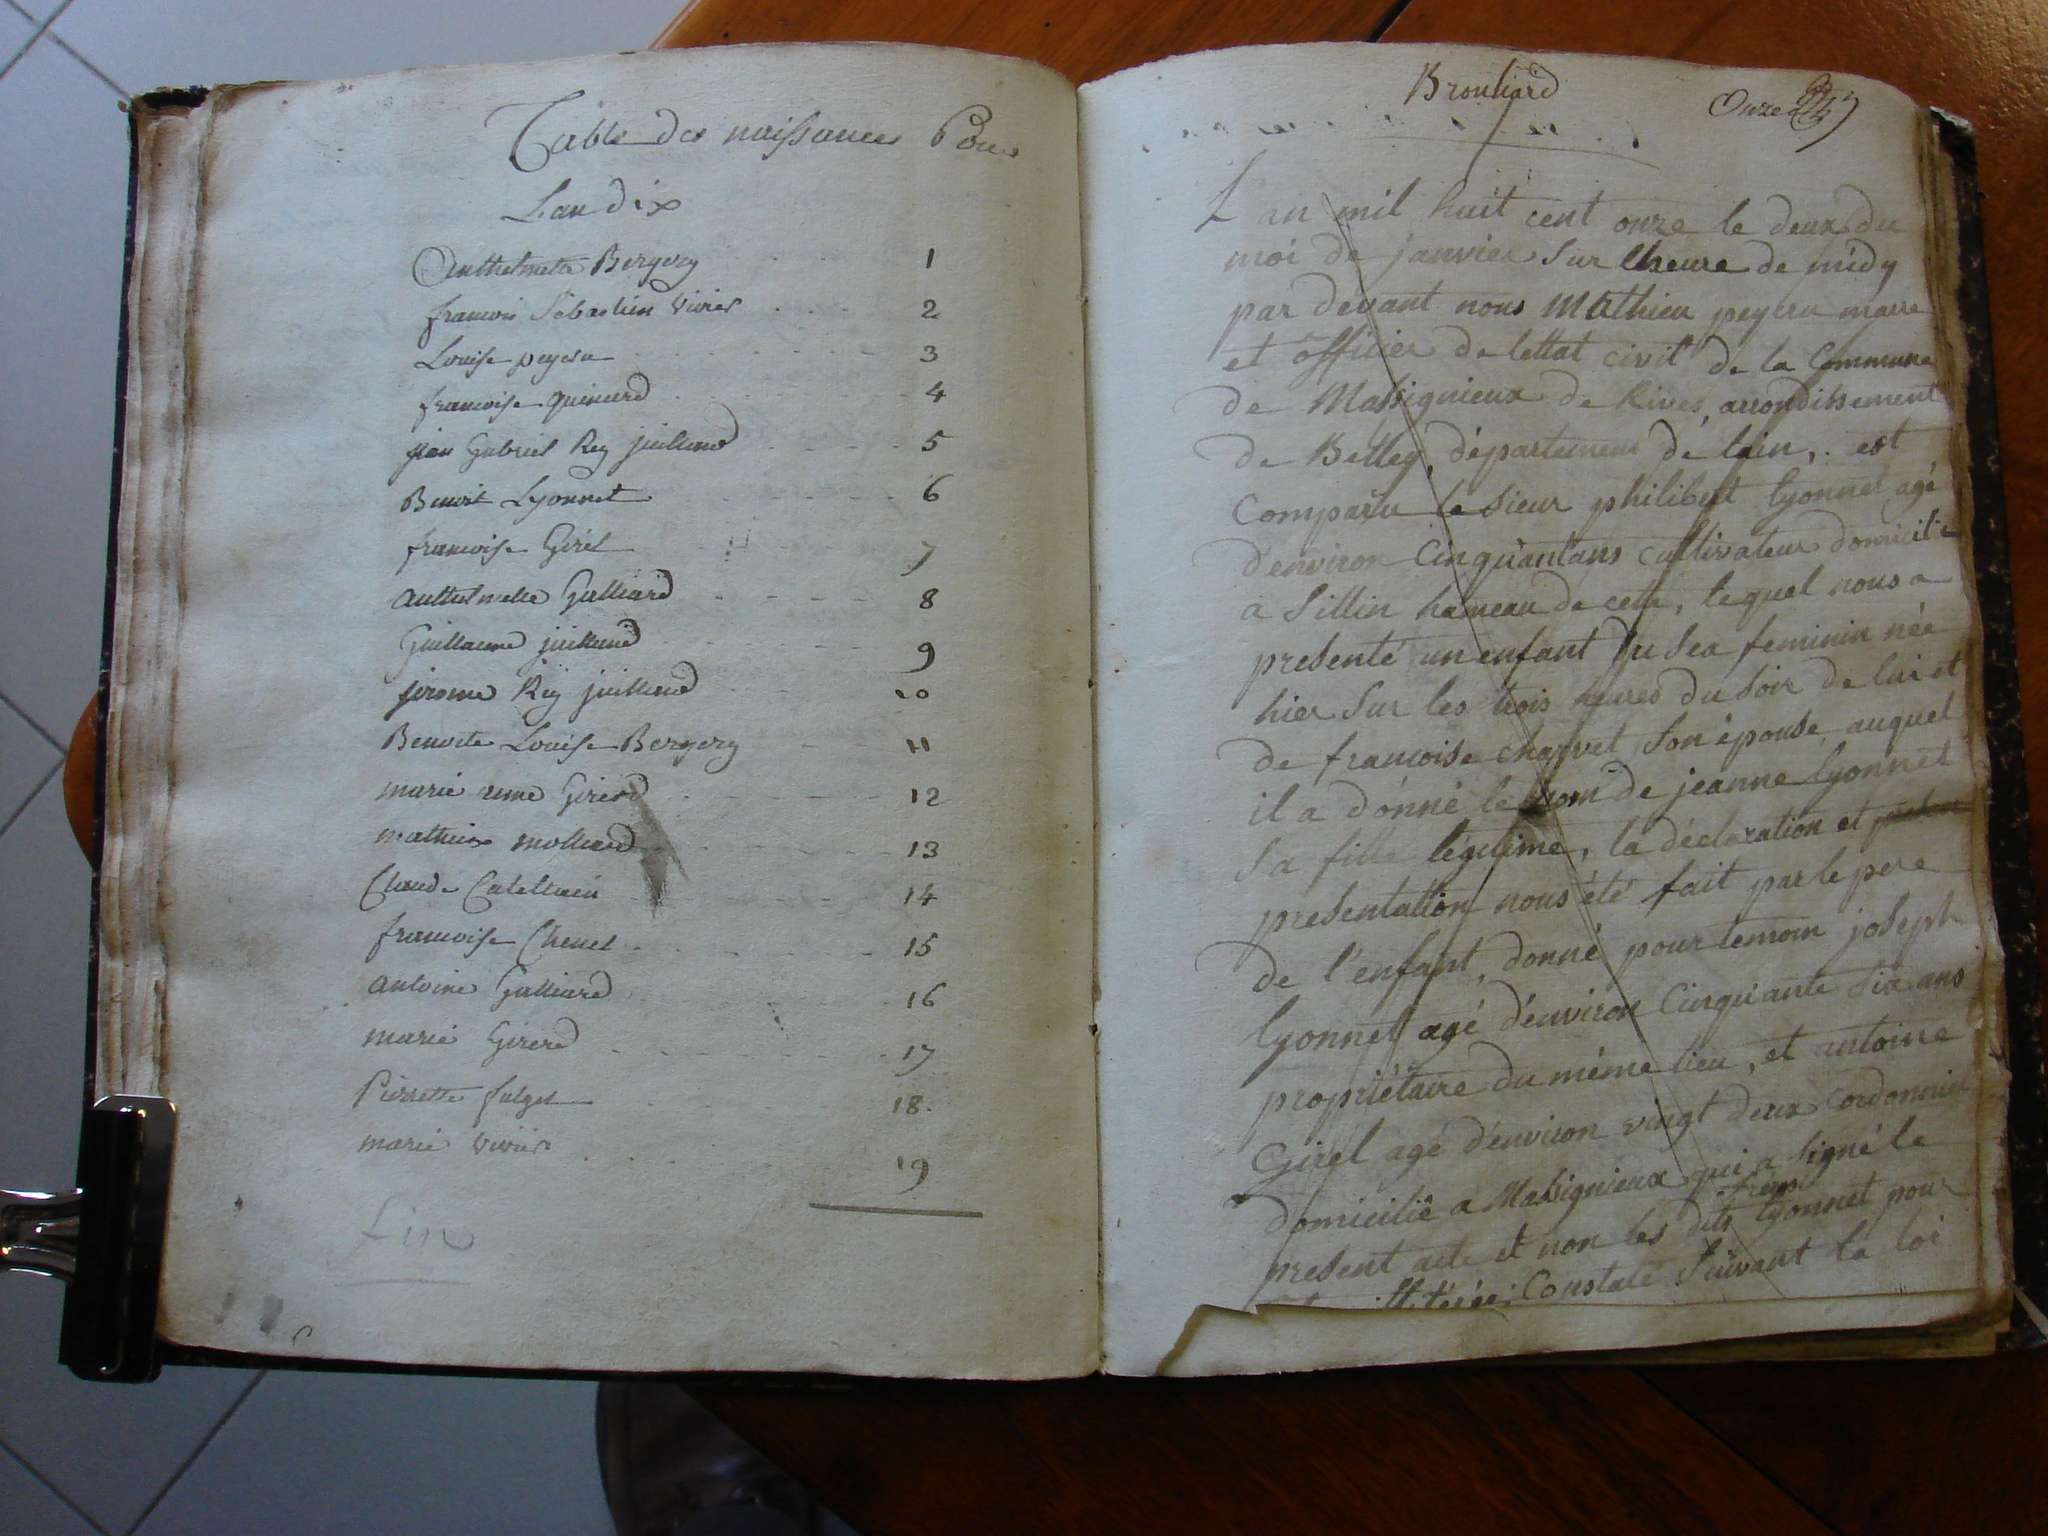 Table des naissances Pour
L'an dix
Anthelmette Bergery 1
francois Sébastien Vivier 2
Louise peysru 3
francoise quinard 4
jean Gabriel Rey juilland 5
Benoit Lyonnet 6
francoise Girel 7
anthelmette Galliard 8
Guillaume juilland 9
jerome Rey juilland 10
Benoite Louise Bergery 11
marie anne Girerd 12
mathieu molliard 13
Claude Catellain 14
francoise Chenet 15
antoine Galliard 16
marie Girerd 17
Pierrette 18
marie Vivier 19
fin
Brouliard
Onze
L'an mil huit cent onze le deux du
moi de janvier Sur lheure de midy
par devant nous Mathieu peysru maire
et officier de lettat civil de la Commune
de Massignieux de Rives, arrondissement
de Belley, département de lain, est
Comparu le Sieur philibert lyonnet agé
d'environ Cinquantans cultivateur domicilié
a Sillin hameau de cette, lequel nous a
presenté un enfant du Sex feminin née
hier Sur les trois heures du Soir de lui et
de francoise charvet Son épouse, auquel
il a donné le nom de jeanne lyonnet
Sa fille légitime, la déclaration et
presentation nous été fait par le pere
de l'enfant, donné pour temoin joseph
lyonnet agé d'environ Cinquante Six ans
propriétaire du même lieu, et antoine
Girel agé d'environ vingt deux cordonnier
domicilié a Massignieux qui a signé le
present acte et non les dits freres lyonnet pour
Constaté Suivant la loi